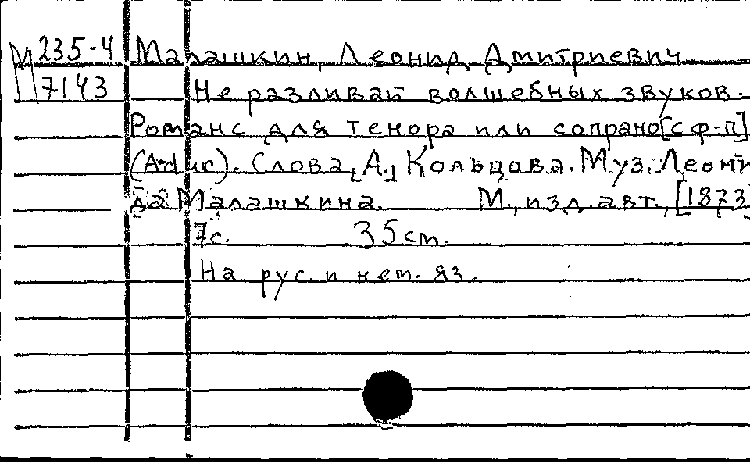 М 235-4 Малашкин, Леонид Дмитриевич
7143 Не разливай волшебных звуков.
Романс для тенора или сопрано [с ф-п]
Слова [А.] Кольцова. Муз. Леони
да Малашкина. М., изд. авт., [1873]
7с. 35 см.
На рус. и нем. яз.